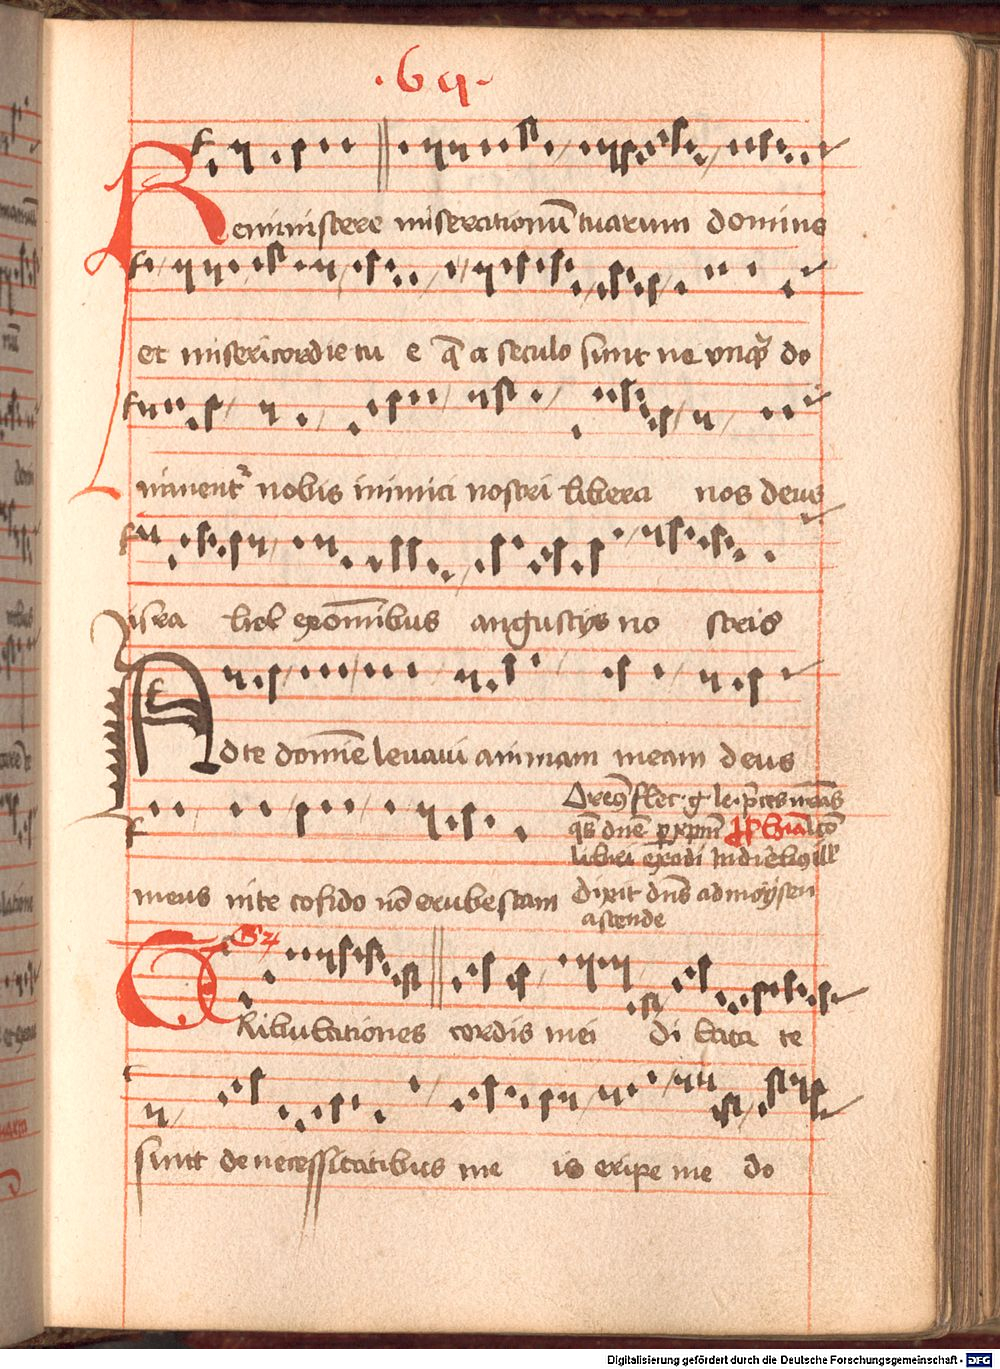 .69.
Reministere miserationū tuarum domine
et misericordie tu e q̄ a seculo sunt ne vnqᷓ do
minent᷑ nobis inimici nostri libera nos deus
isra hel ex om̄ibus angustijs no stris
Ad te domīe levavi animam meam deus
meus in te cōfido nō erubescam
Orem⁹ flec. g. le. p̄ces nr̄as
qs̄ dn̄e p xpm̄ lcō
libri exodi In dieb⁹ ill̓
Dixit dn̄s ad moÿsen
ascende
Gr
Tribulationes cordis mei di lata te
sunt de necessitatibus me is eripe me do
Digitalisierung gefördert durch die Deutsche Forschungsgemeinschaft - DFG